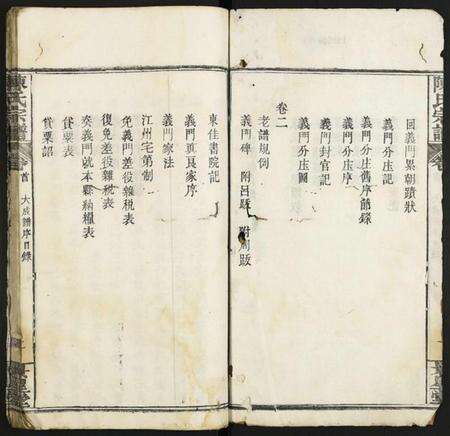 陳氏宗譜
回義門累朝蹟狀
義門分庄記
義門分庄舊序節錄
義門分庄序
義門封官記
義門分庄圖
卷二
老譜規例
義門碑 附呂跋 附周跋
東佳書院記
義門真良家序
義門家法
江州宅第制
免義門差役雜稅表
復免差役雜稅表
奏義門就本縣納糧表
貸粟表
貸粟詔
陳氏宗譜
卷首
大成譜序目錄